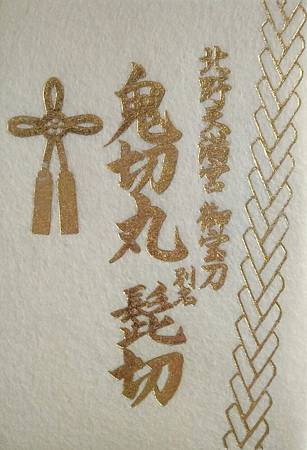 北野天満宮 御宝刀
鬼切丸 別名 髭切